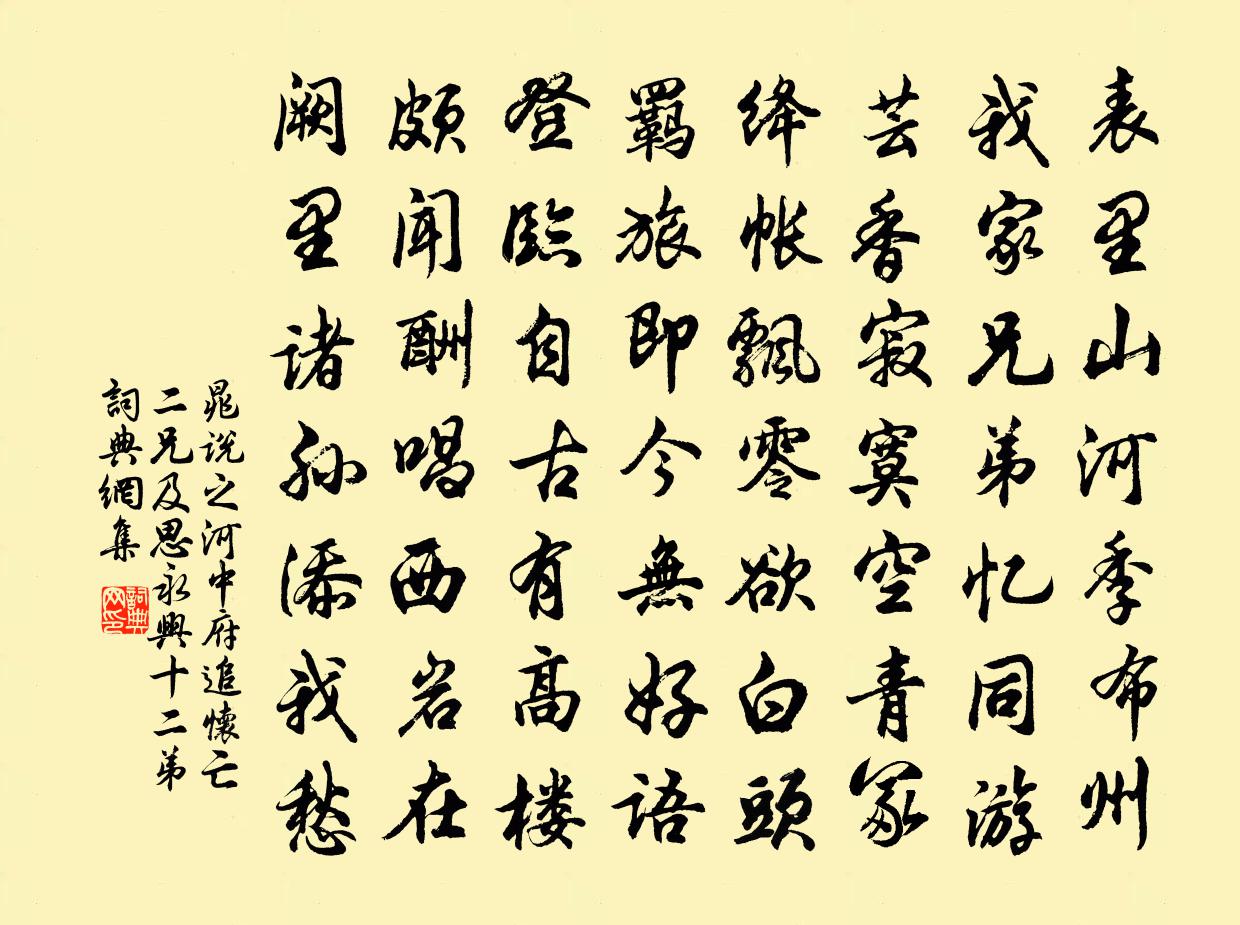 表里山河季布州
我家兄弟忆同游
芸香寂寞空青冢
绛帐飘零欲白頭
羁旅即今無好語
登臨自古有高楼
颇闻酬唱西岩在
阙里诸孙添我愁
晁说之河中府追懷亡
二兄及思永興十二弟
詞典網集
詞典網印